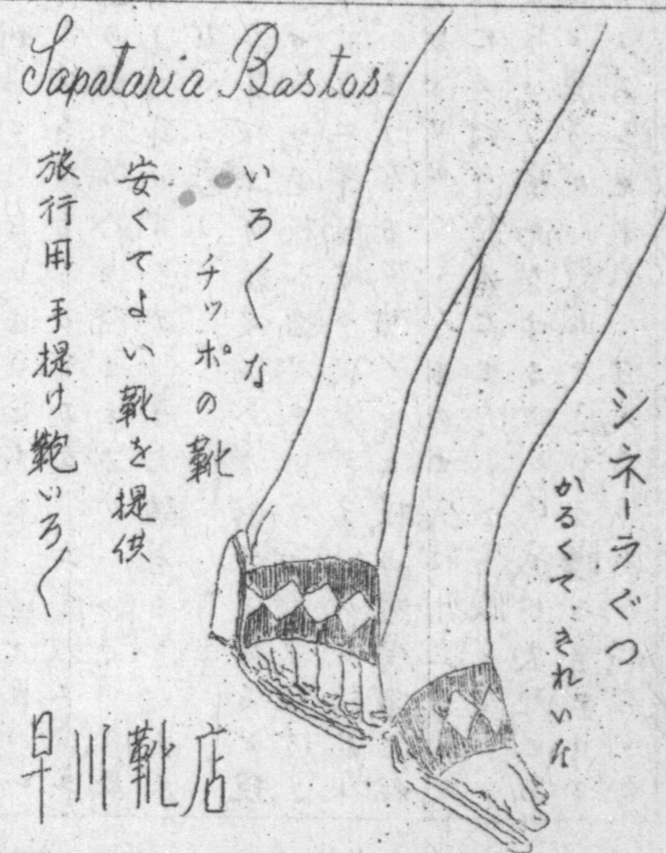 Sapataria Bastos
シネーラぐつ
かるくて きれいな
いろ〱な
チッポの靴
安くてよい靴を提供
旅行用 手提げ鞄いろ〱
早川靴店